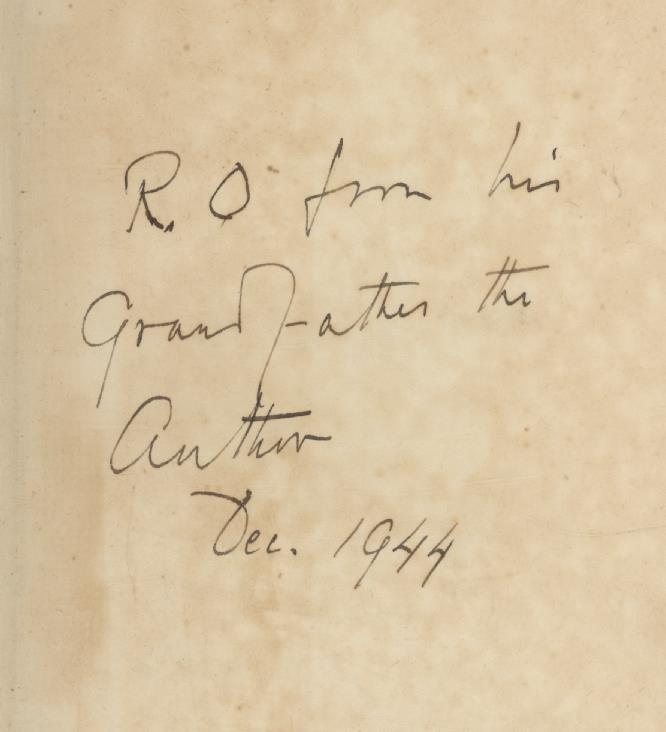 R. O from his
Grandfather the
Author
Dec. 1944